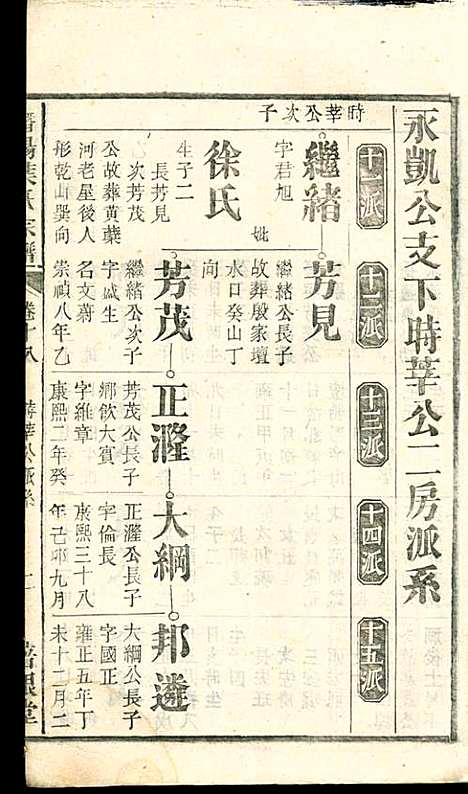 永凱公支下時莘公二房派系
十一派
十二派
十三派
十四派
十五派
時莘公次子
繼緒
字君旭
妣
徐氏
生子二
長芳見
次芳茂
公故葬黃葉
河老屋後人
形乾山巽向
芳見
繼緒公長子
故葬殷家壇
水口癸山丁
向
芳茂
繼緒公次子
字盛生
名文蔚
崇禎八年乙
正瀣
芳茂公長子
鄉飲大賓
字維章
康熙二年癸
大綱
正瀣公長子
字倫長
康熙三十八
年己卯九月
邦達
大綱公長子
字國正
雍正五年丁
未十二月二
葉氏宗譜
卷十八
時莘公派系